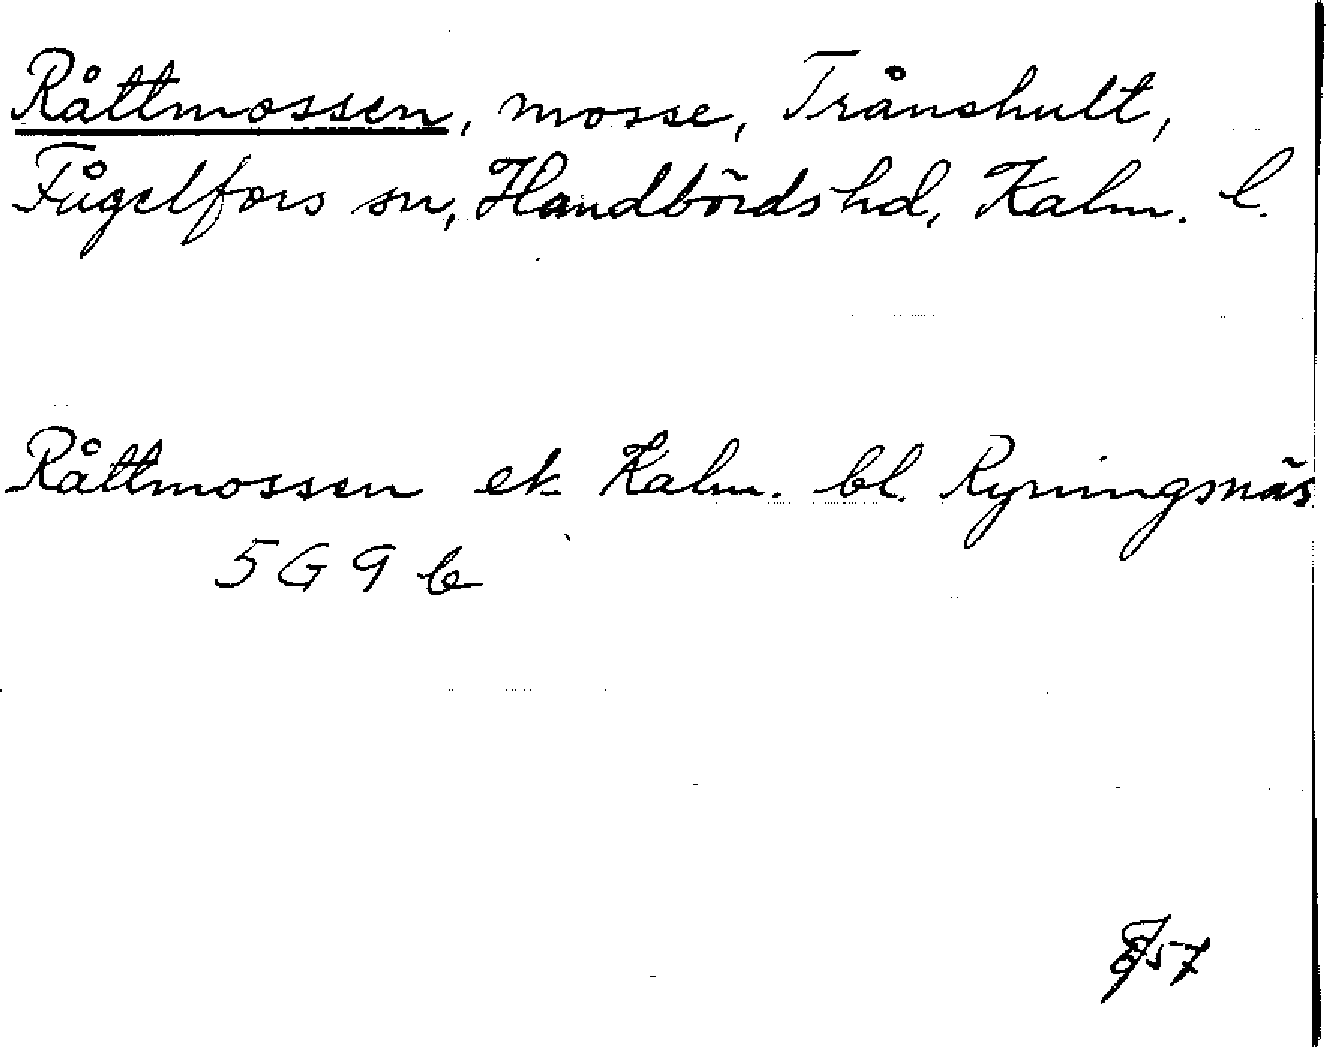 Råttmossen, mosse, Trånshult,
Fågelfors sn, Handbörds hd, Kalm. l.
Råttmossen ek Kalm. bl. Ryningsnäs
5 G 9 b
57